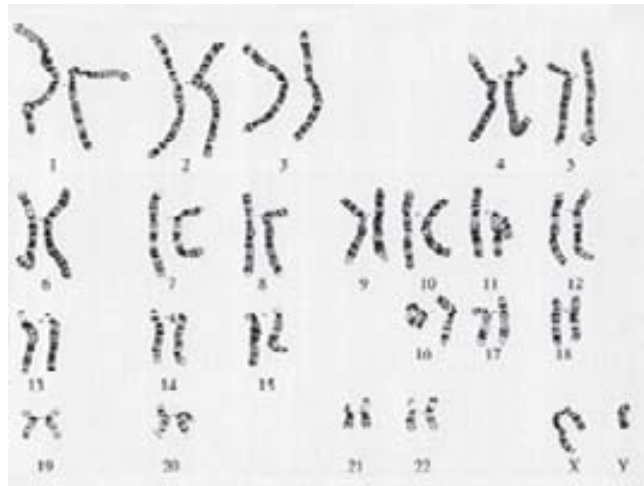 1 2 3 4 5
6 7 8 9 10 11 12
13 14 15 16 17 18
19 20 21 22 X Y